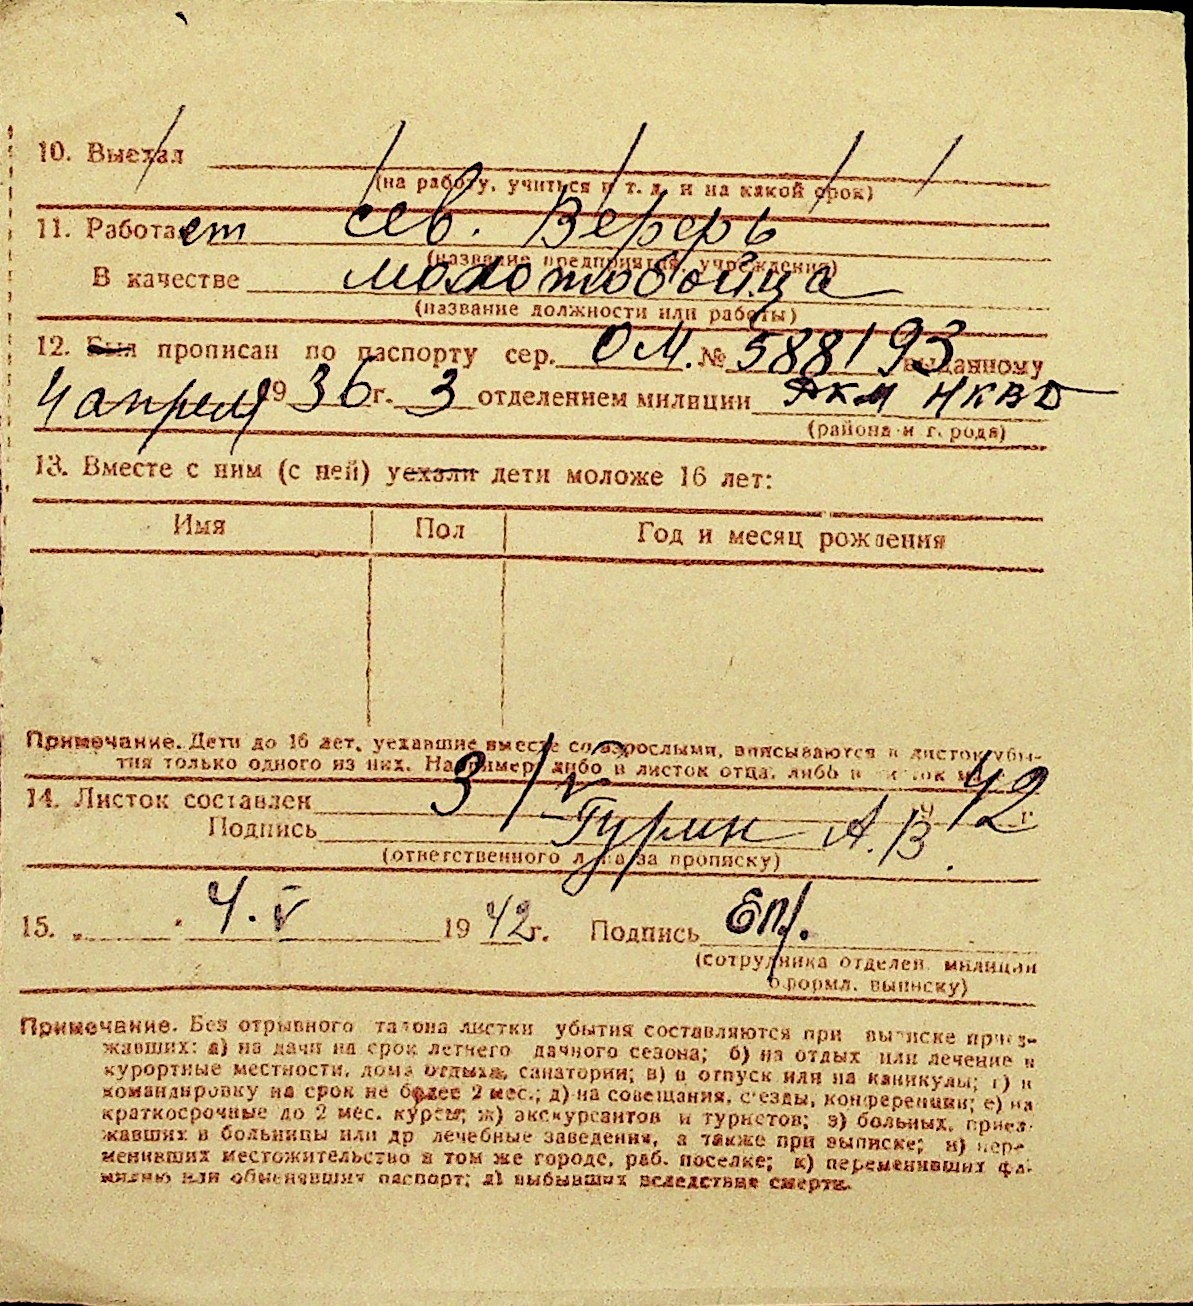 10. Выехал
(на работу, учиться и т. д. и на какой срок)
11. Работает сев. Верфь
(название предприятия, учреждения)
В качестве молотобойца
(название должности или работы)
12. Был прописан по паспорту сер. ОМ. № 588193 выданному
4 апреля 1936 г. 3 отделением милиции РКМ НКВД
(района и города)
13. Вместе с ним (с ней) уехали дети моложе 16 лет:
Имя Пол Год и месяц рождения
Примечание. Дети до 16 лет, уехавшие вместе со взрослыми, вписываются в листок убы-
тия только одного из них. Например либо в листок отца, либо в листок
14. Листок составлен 3/V 42 г.
Подпись Гурин А.В.
(ответственного лица за прописку)
15. „ 4.V 1942 г. Подпись
(сотрудника отделен. милиции
оформл. выписку)
Примечание. Без отрывного талона листки убытия составляются при выписке приез-
жавших: а) на дачи на срок летнего дачного сезона; б) на отдых или лечение в
курортные местности, дома отдыха, санатории; в) в отпуск или на каникулы; г) в
командировку на срок не более 2 мес.; д) на совещания, с'езды, конференции; е) на
краткосрочные до 2 мес. курсы; ж) экскурсантов и туристов; з) больных, приез-
жавших в больницы или др лечебные заведения, а также при выписке; и) пере-
менивших местожительство в том же городе, раб. поселке; к) переменивших фа-
милию или обменявших паспорт; л) выбывших вследствие смерти.